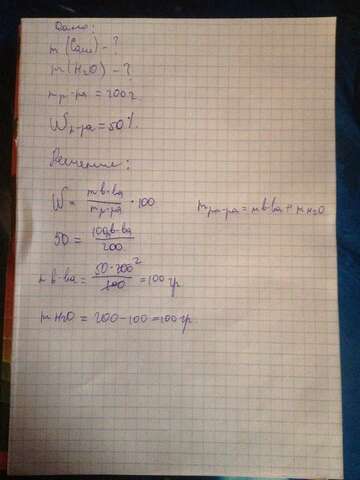 Дано:
m (Соли) - ?
m (H₂O) - ?
m р-ра = 200 г.
W р-ра = 50 %.
Решение:
W = m в-ва / m р-ра · 100
m р-ра = m в-ва + m H₂O
50 = 100 в-ва / 200
m в-ва = 50 · 200 2 / 100 = 100 гр.
m H₂O = 200 - 100 = 100 гр.